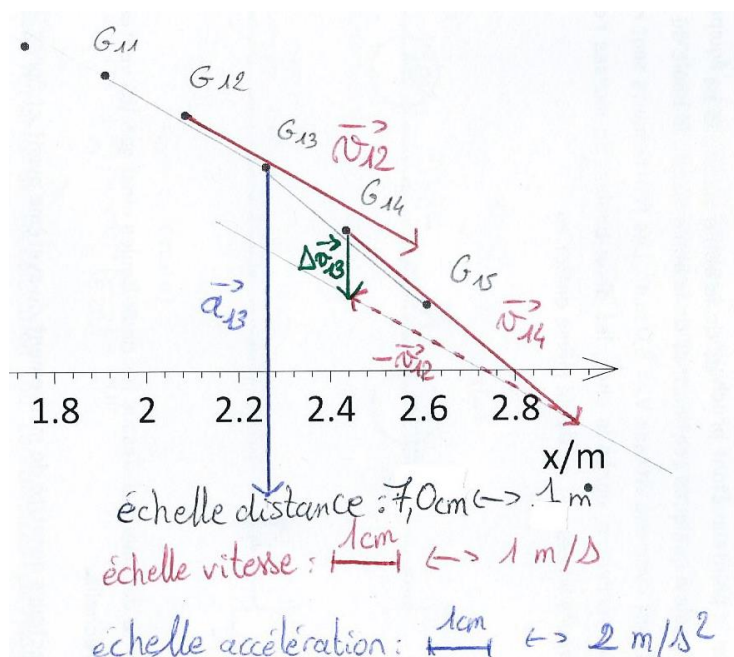 G11
G12
G13
v12
G14
Δv13
G15
a13
v14
-v12
1.8 2 2.2 2.4 2.6 2.8
x/m
échelle distance : 7,0cm <-> 1 m
1cm
échelle vitesse : <-> 1 m/s
1cm
échelle accélération : <-> 2 m/s²